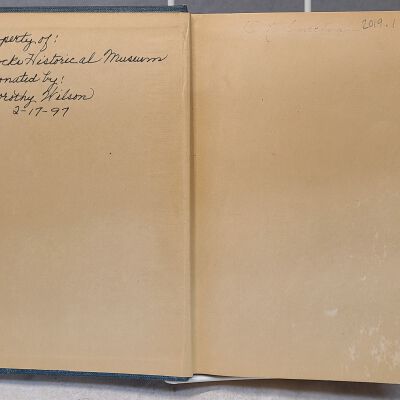 operty of:
ocke Historical Museum
onated by:
orothy Wilson
2-17-97
2019.1